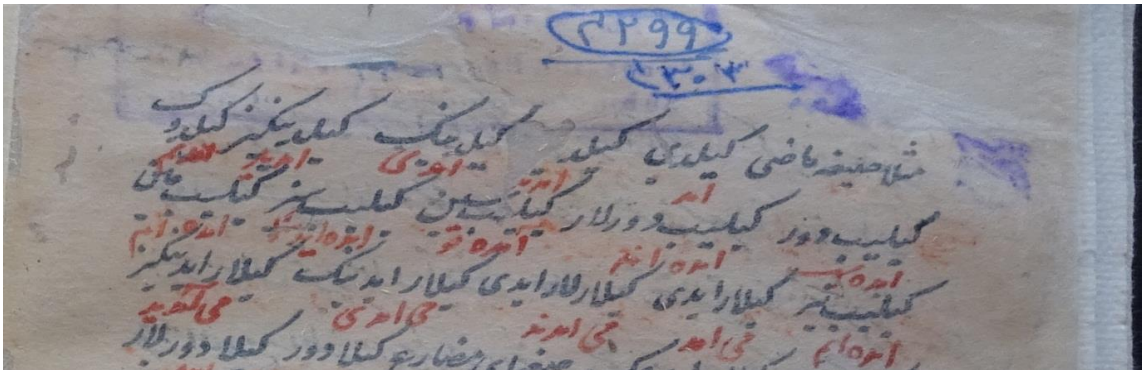 ٣٢٩٩
١٣٠٣
مثلا صیغه ماضی کیلدی کیلدی کیلدینک کیلدینکیز کیلدوک
آمد آمدند آمدی آمدید آمدیم
کیلیب دور کیلیب دورلار کیلیب سین کیلیب سیز کیلیب مان
آمده است آمده اند آمده اید آمده ام
کیلیب میز کیلار ایدی کیلارلار ایدی کیلار ایدینک کیلار ایدینکیز
آمده ایم می آمد می آمدند می آمدی می آمدید
مضارع کیلادور کیلادورلار